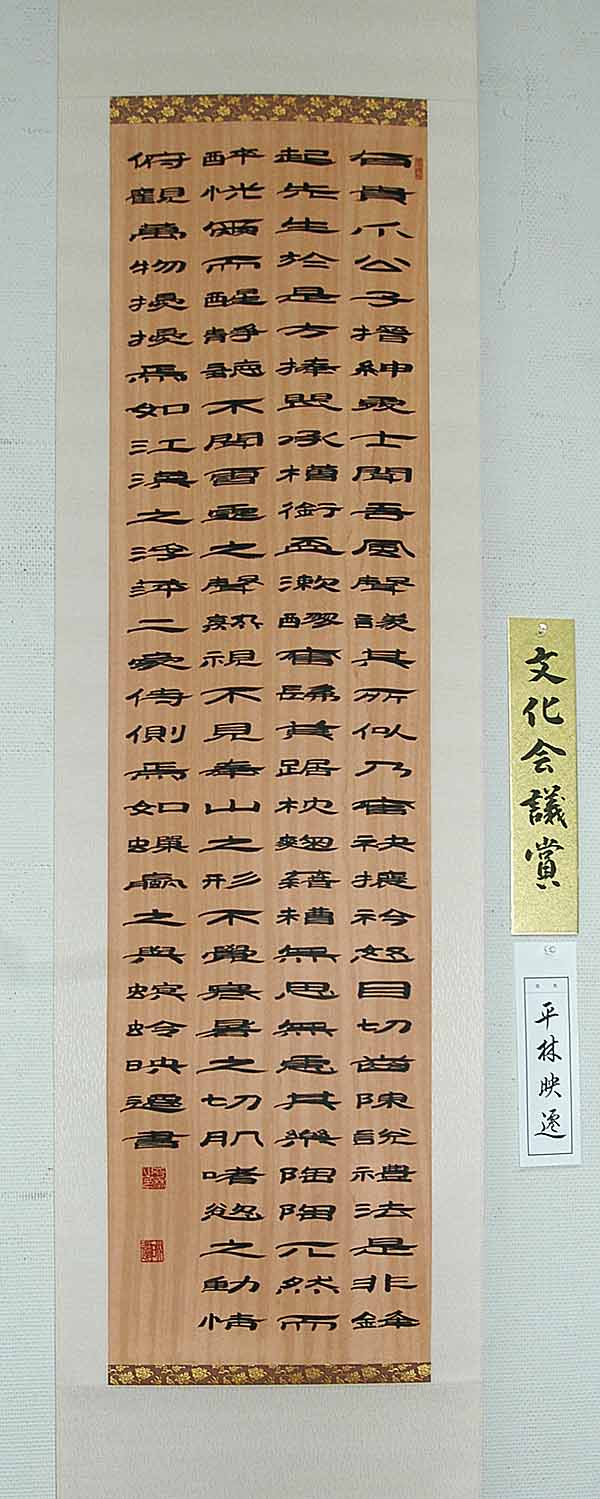 有貴介公子搢紳處士聞吾風聲議其所似乃奮袂攘衿怒目切齒陳說禮法是非鋒
起先生於是方捧甖承槽銜盃漱醪奮髯箕踞枕麴藉糟無思無慮其樂陶陶兀然而
醉恍爾而醒靜聽不聞雷霆之聲熟視不見泰山之形不覺寒暑之切肌嗜慾之動情
俯觀萬物擾擾焉如江漢之浮萍二豪侍側焉如蜾蠃之與螟蛉映遷書
文化会議賞
平林映遷